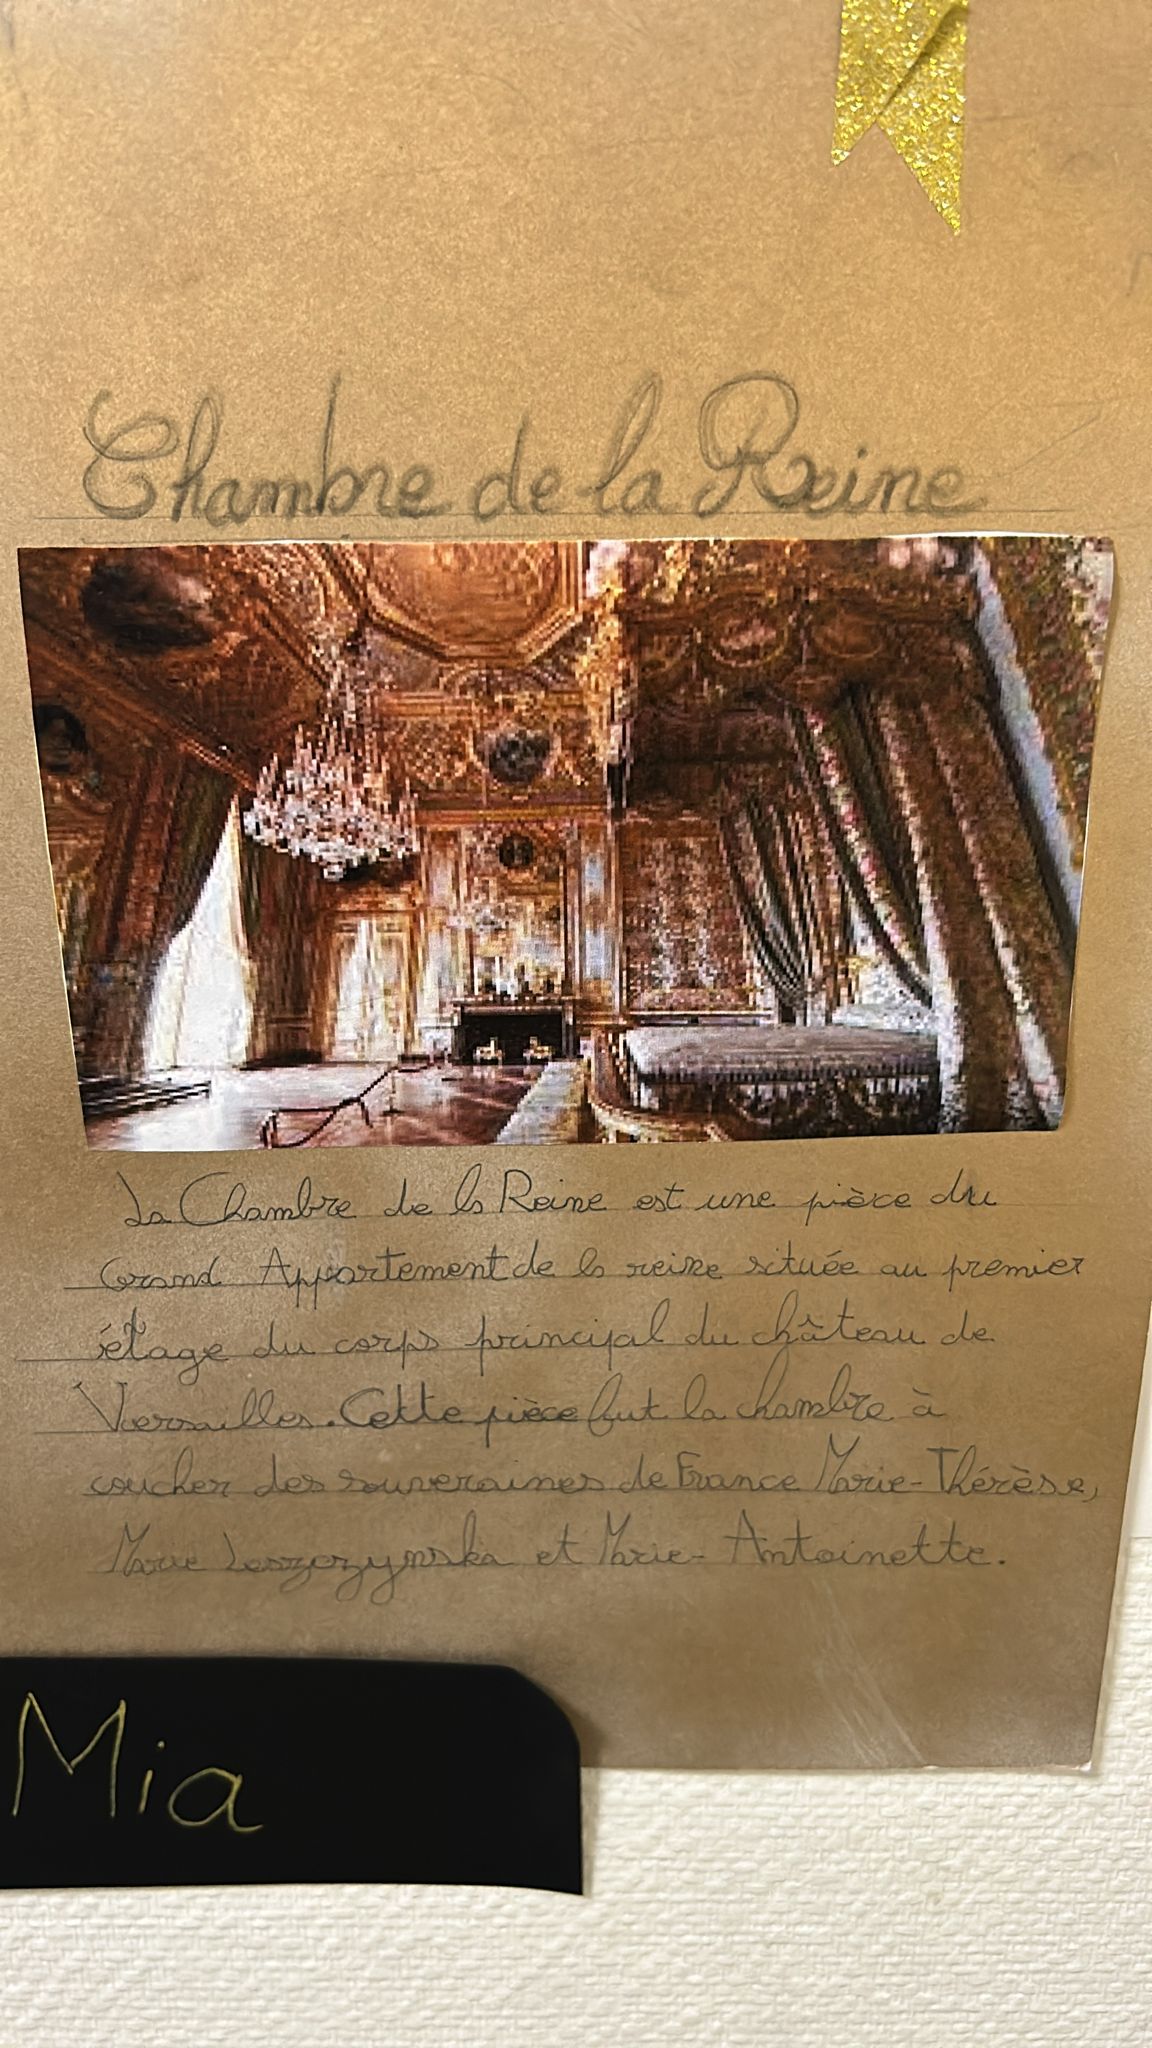 Chambre de la Reine
La Chambre de la Reine est une pièce du
Grand Appartement de la reine située au premier
étage du corps principal du château de
Versailles. Cette pièce fut la chambre à
coucher des souveraines de France Marie-Thérèse,
Marie Leszczynska et Marie-Antoinette.
Mia